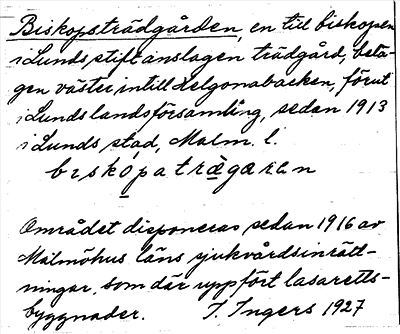 Biskopsträdgården, en till biskopen
i Lunds stift anslagen trädgård, belä-
gen väster intill Helgonabacken, förut
i Lunds landsförsamling, sedan 1913
i Lunds stad, Malm. l.
bɩskòpaträgaʀan
Området disponeras sedan 1916 av
Malmöhus läns sjukvårdsinrätt-
ningar, som där uppfört lasaretts-
byggnader. I. Ingers 1927